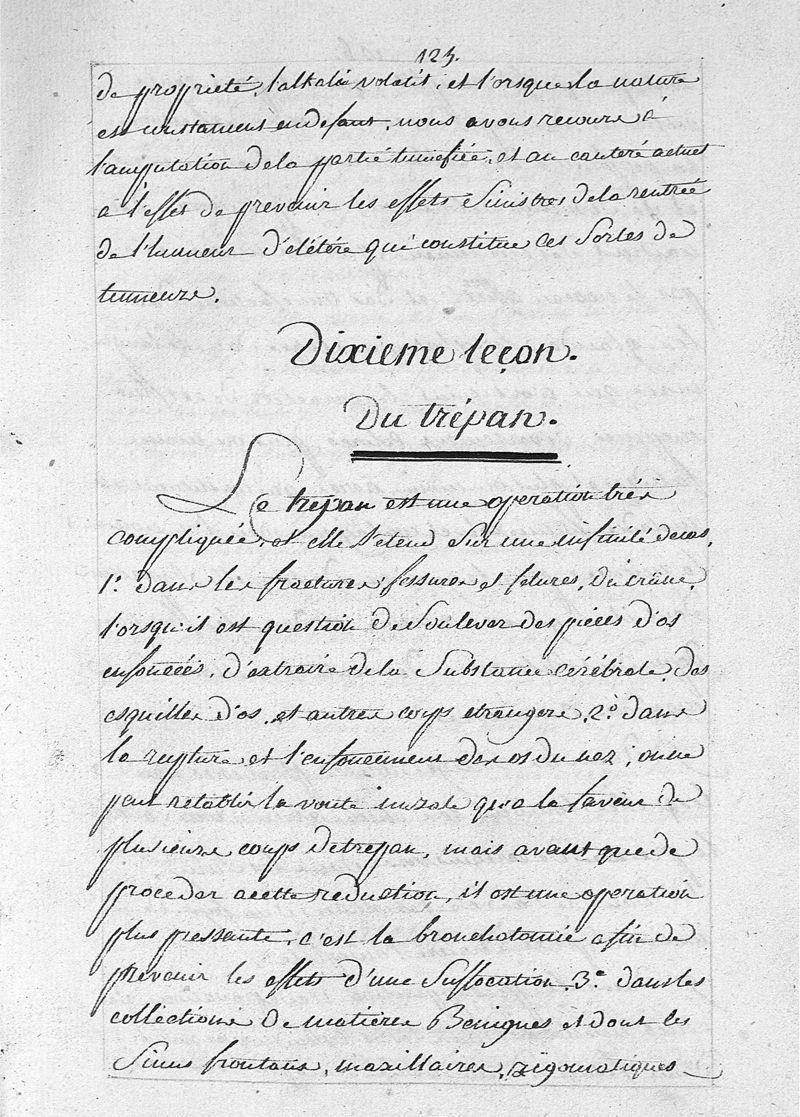 123.
de proprieté, l'alkali volatil, et l'orsque la nature
est constament en defaut, nous avons recours à
l'amputation de la partie tumefiée, et au cautére actuel
à l'effet de prevenir les effets Sinistres de la rentrée
de l'humeur délétére qui constitue ces Sortes de
tumeurs.
Dixieme leçon.
Du trépan.
Le trépan est une operation trés
compliquée, et elle s'etend Sur une infinité de cas,
1º. dans les fractures fessures et felures, du crâne,
l'orsqu'il est question de Soulever des piéces d'os
enfoncées, d'extraire de la Substance cérébrale, des
esquilles d'os, et autres corps etrangers, 2º. dans
la rupture et l'enfoncement des os du nez; on ne
peut retablir la voute nazale qu'a la faveur de
plusieurs coups de trepan, mais avant que de
proceder a cette reduction, il est une operation
plus pressente, c'est la bronchotomie afin de
prevenir les effets d'une Suffocation. 3º. dans les
collections de matières Benignes et dont les
Sinus frontaux, maxillaires, zigomatiques